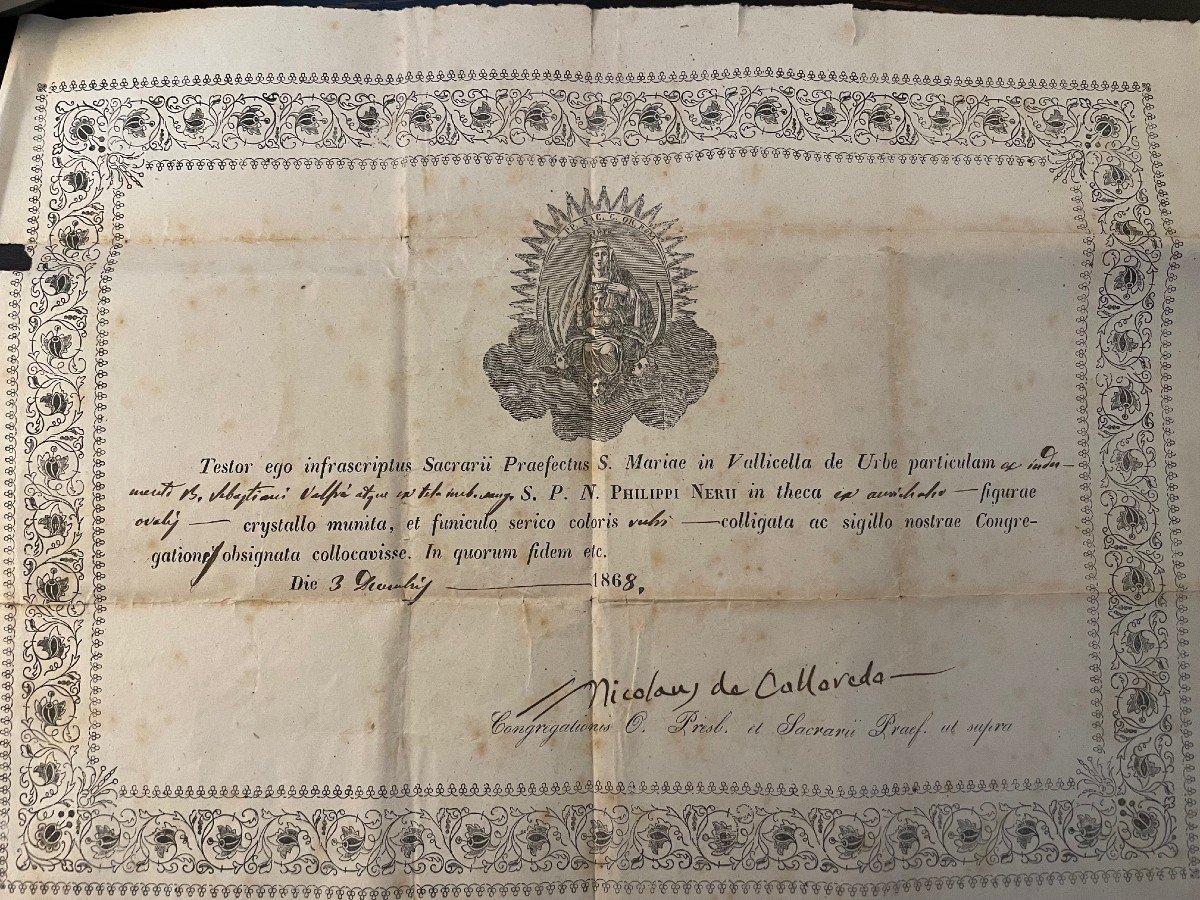 Testor ego infrascriptus Sacrarii Praefectus S. Mariae in Vallicella de Urbe particulam ex indu-
menti B. Sebastiani Valfrè atque ex tela imb. sang. S. P. N. PHILIPPI NERII in theca ex aurichalco — figurae
ovalis — crystallo munita, et funiculo serico coloris rubri — colligata ac sigillo nostrae Congre-
gationis obsignata collocavisse. In quorum fidem etc.
Die 3 Decembris — 1868.
Nicolaus de Colloredo
Congregationis O. Presb. et Sacrarii Praef. ut supra